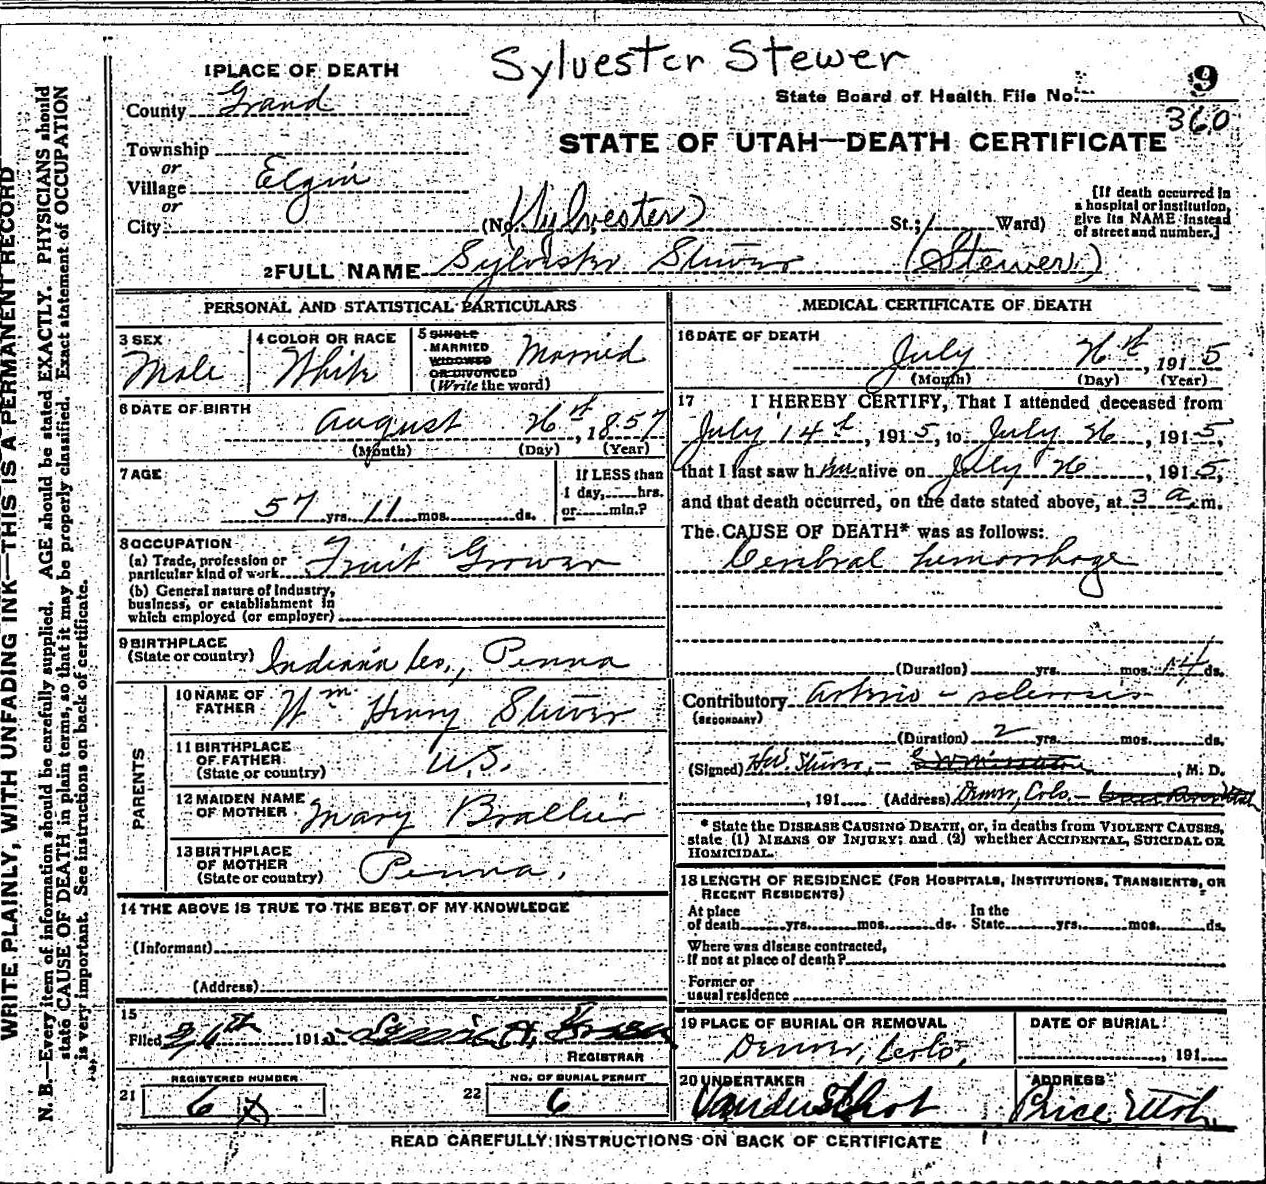 Sylvester Stewer
1 PLACE OF DEATH
State Board of Health File No. 9
360
County Grand
STATE OF UTAH—DEATH CERTIFICATE
Township
or
Village Elgin
or
City (No. (Sylvester) St.; Ward)
[If death occurred in
a hospital or institution,
give its NAME instead
of street and number.]
2 FULL NAME Sylvester Stüver (Stewer)
PERSONAL AND STATISTICAL PARTICULARS
3 SEX
Male
4 COLOR OR RACE
White
5 SINGLE
MARRIED
WIDOWED
OR DIVORCED
(Write the word)
Married
6 DATE OF BIRTH
August 26th, 1857
(Month) (Day) (Year)
7 AGE
57 yrs. 11 mos. ds.
If LESS than
1 day, hrs.
or min.?
8 OCCUPATION
(a) Trade, profession or
particular kind of work Fruit Grower
(b) General nature of Industry,
business, or establishment in
which employed (or employer)
9 BIRTHPLACE
(State or country) Indiana Co., Penna
PARENTS
10 NAME OF
FATHER Wm Henry Stüver
11 BIRTHPLACE
OF FATHER
(State or country) U.S.
12 MAIDEN NAME
OF MOTHER Mary Brallier
13 BIRTHPLACE
OF MOTHER
(State or country) Penna.
14 THE ABOVE IS TRUE TO THE BEST OF MY KNOWLEDGE
(Informant)
(Address)
15
Filed 26th 191
REGISTRAR
REGISTERED NUMBER
21 6
NO. OF BURIAL PERMIT
22 6
MEDICAL CERTIFICATE OF DEATH
16 DATE OF DEATH
July 26th, 1915
(Month) (Day) (Year)
17 I HEREBY CERTIFY, That I attended deceased from
July 14th, 1915, to July 26, 1915,
that I last saw him alive on July 26, 1915,
and that death occurred, on the date stated above, at 3 a.m.
The CAUSE OF DEATH* was as follows:
Cerebral hemorrhage
(Duration) yrs. mos. 14 ds.
Contributory arterio-sclerosis
(SECONDARY)
(Duration) 2 yrs. mos. ds.
(Signed) Stüver, – , M. D.
, 191 (Address) Denver, Colo. –
* State the DISEASE CAUSING DEATH, or, in deaths from VIOLENT CAUSES,
state (1) MEANS OF INJURY; and (2) whether ACCIDENTAL, SUICIDAL OR
HOMICIDAL.
18 LENGTH OF RESIDENCE (FOR HOSPITALS, INSTITUTIONS, TRANSIENTS, OR
RECENT RESIDENTS)
At place
of death yrs. mos. ds. In the
State yrs. mos. ds.
Where was disease contracted,
if not at place of death?
Former or
usual residence
19 PLACE OF BURIAL OR REMOVAL
Denver, Colo.
DATE OF BURIAL
, 191
20 UNDERTAKER
ADDRESS
Price Utah
READ CAREFULLY INSTRUCTIONS ON BACK OF CERTIFICATE
WRITE PLAINLY, WITH UNFADING INK—THIS IS A PERMANENT RECORD
N. B.—Every item of information should be carefully supplied. AGE should be stated EXACTLY. PHYSICIANS should
state CAUSE OF DEATH in plain terms, so that it may be properly classified. Exact statement of OCCUPATION
is very important. See instructions on back of certificate.